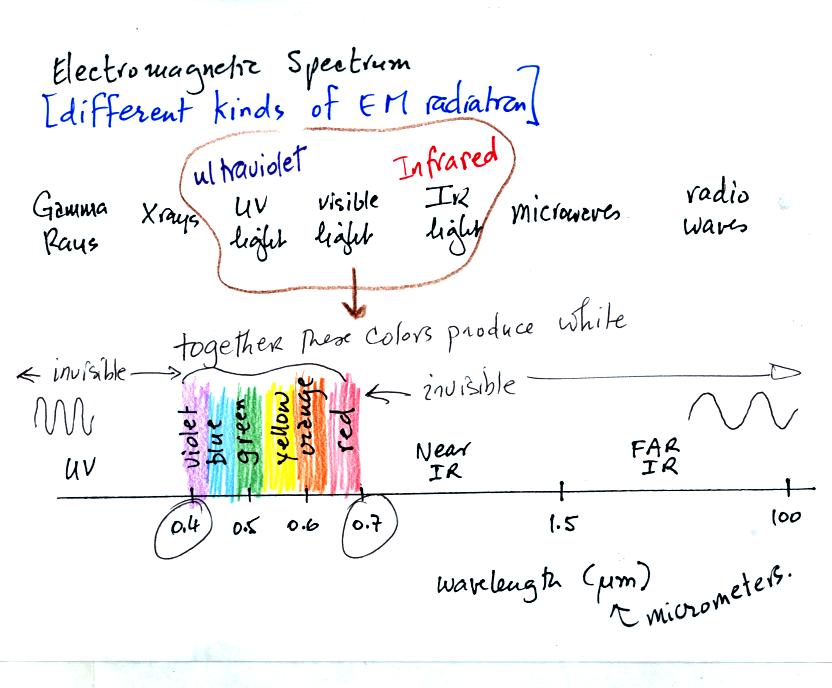 Electromagnetic Spectrum
[different kinds of EM radiation]
ultraviolet Infrared
Gamma Rays
Xrays
UV light
visible light
IR light
microwaves
radio waves
together these colors produce white
← invisible →
← invisible →
violet
blue
green
yellow
orange
red
UV
Near IR
FAR IR
0.4 0.5 0.6 0.7 1.5 100
wavelength (μm)
↖ micrometers.